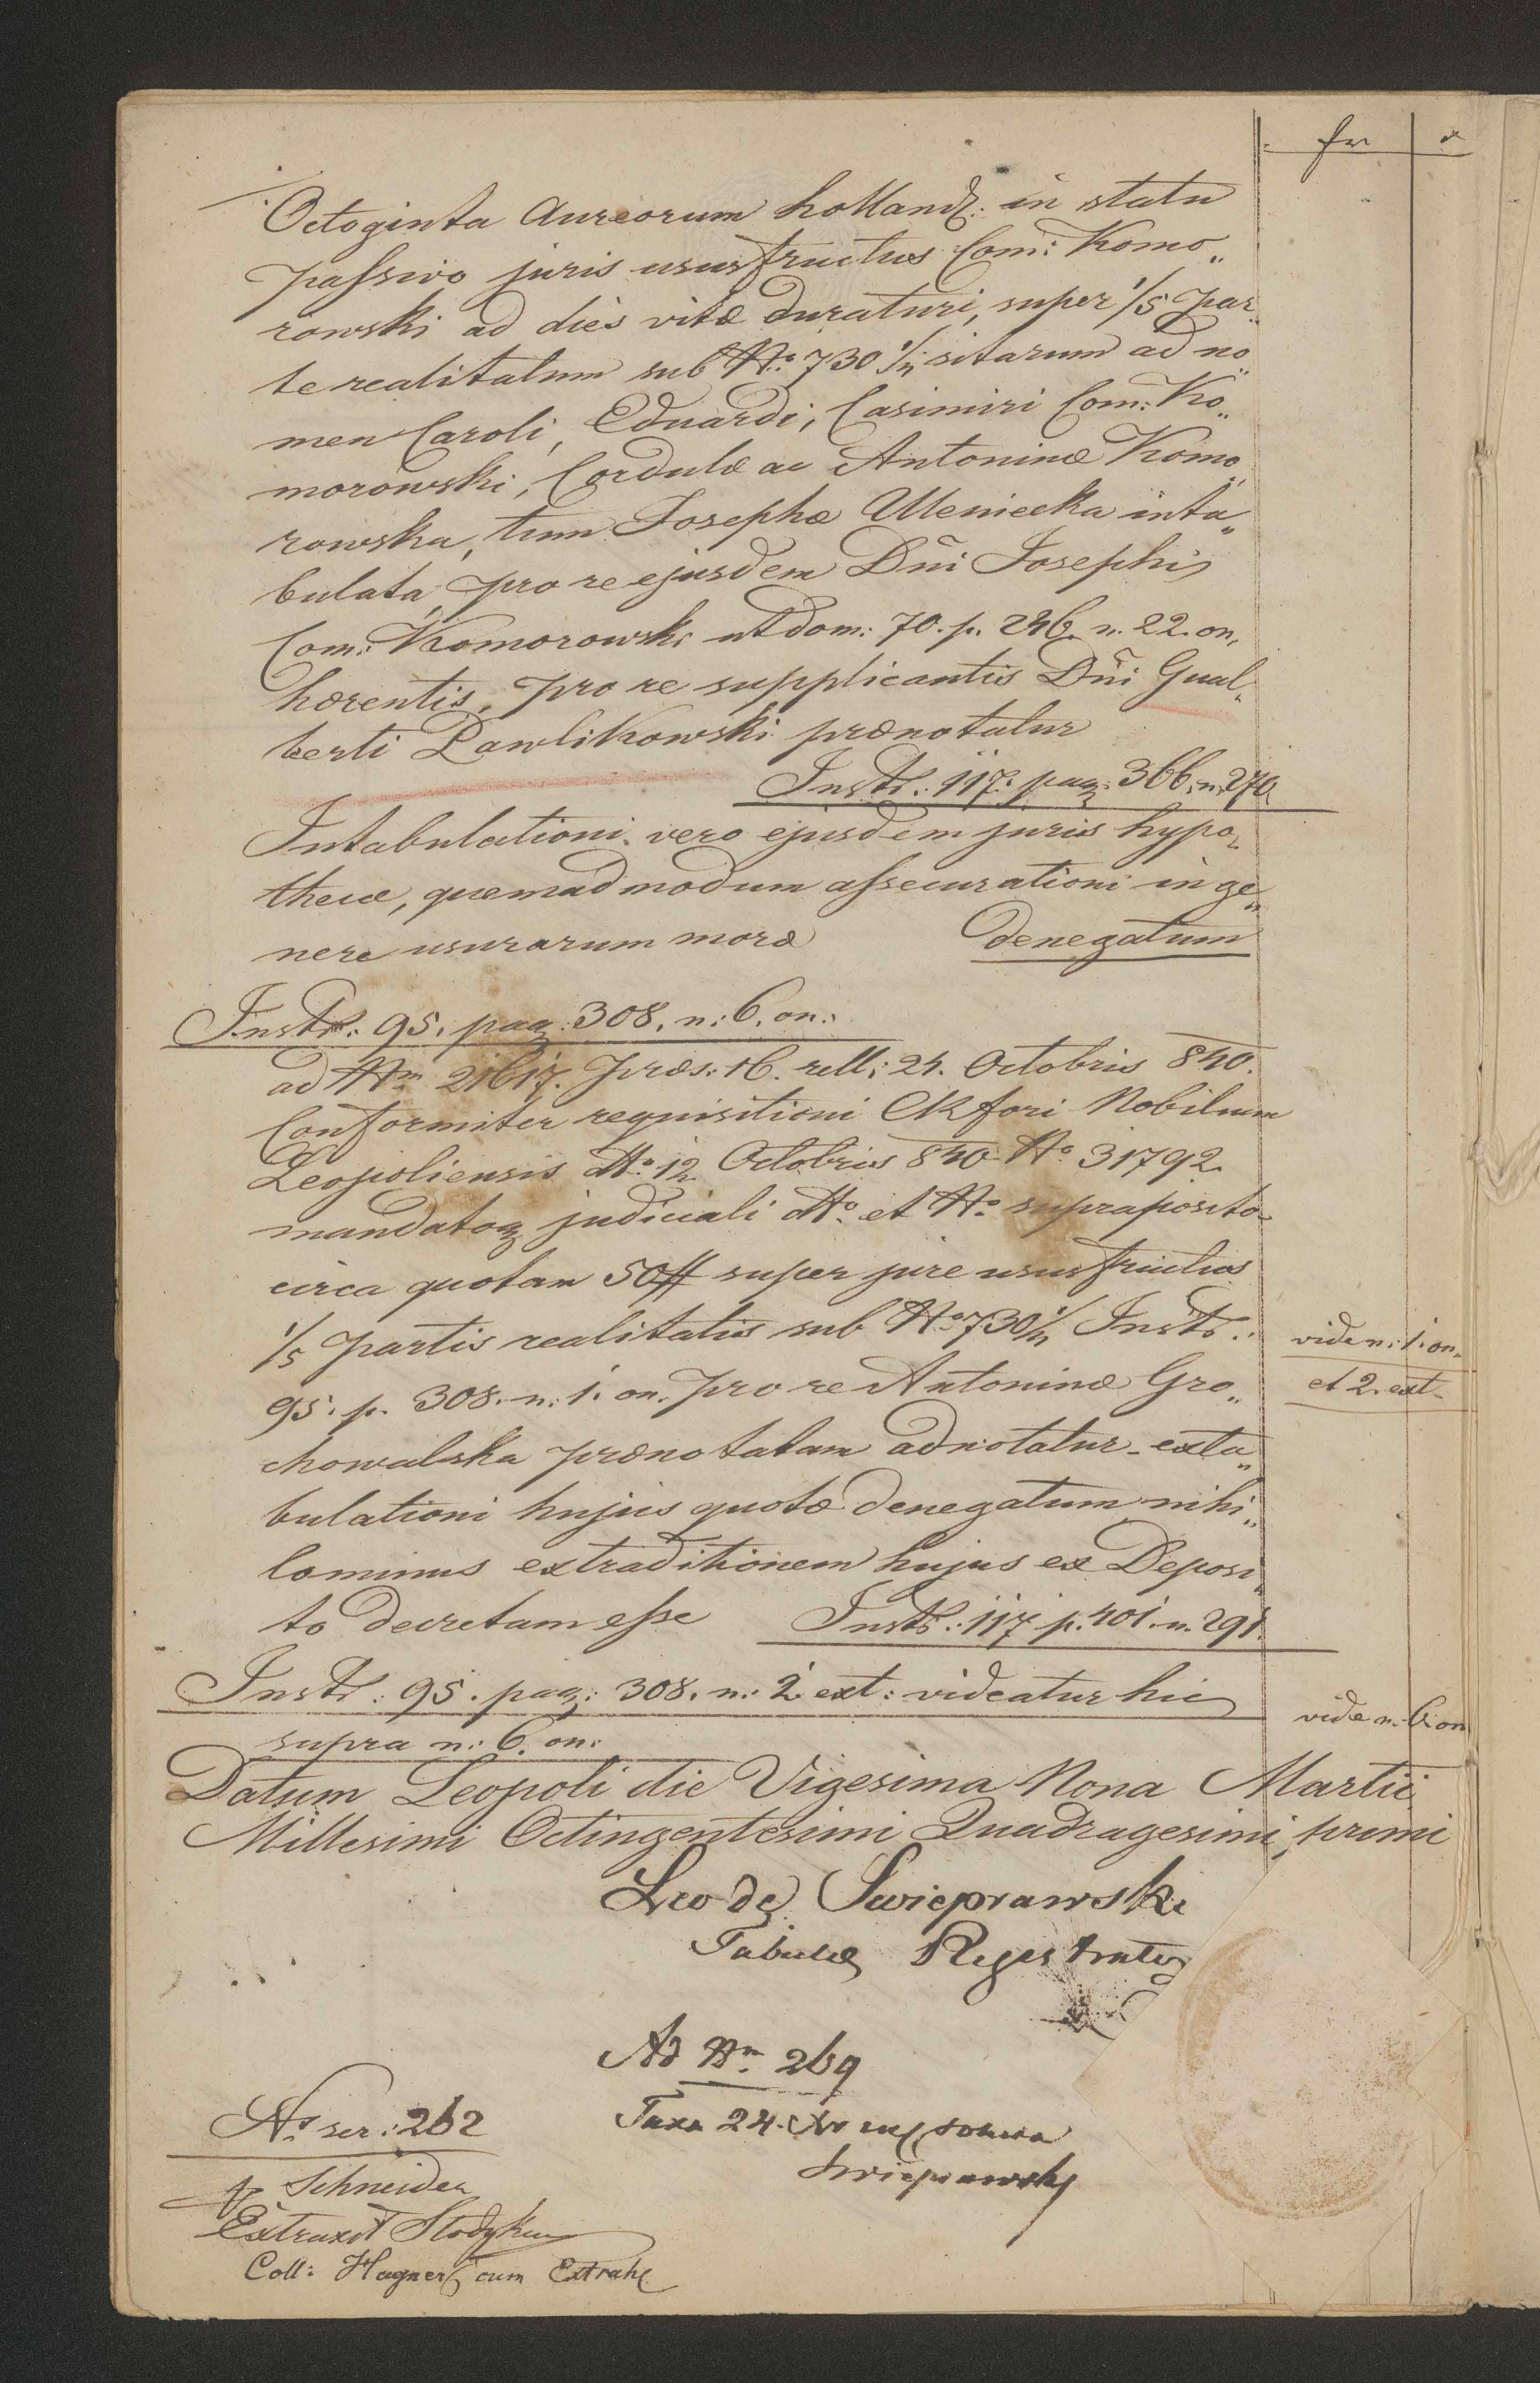 fr x
Octoginta Aureorum holland: in statu
passivo juris ususfructus Com: Komo„
rowski ad dies vitæ duraturi, super 1/5 par„
te realitatum sub No: 730 1/4 sitarum ad no„
men Caroli, Eduardi, Casimiri Com: Ko„
morowski, Cordulæ ac Antoninæ Komo„
rowska, tum Josephæ Meniecka inta„
bulata, pro re ejusdem Dni Josephi
Com: Komorowski ut dom: 70. p. 246. n. 22. on.
hærentis, pro re supplicantis Dni Gual„
berti Pawlikowski prænotatur
Instr: 117. pag: 366. n. 270.
Intabulationi vero ejusdem juris hypo„
thecæ, quemadmodum assecurationi in ge„
nere usurarum moræ denegatum
Instr: 95. pag: 308. n: 6. on:
ad Nm 21617. præs: 16. rell: 24. Octobris 840.
Conformiter requisitioni CR fori Nobilium
Leopoliensis dto 12 Octobris 840 No 31792.
mandatoq judiciali dto et No supraposito
circa quotam 50 # super jure ususfructus
1/5 partis realitatis sub No 730 1/4 Instr:
95. p. 308. n: 1. on. pro re Antoninæ Gro„
chowalska prænotatam adnotatur extа„
bulationi hujus quotæ denegatum, nihi„
lominus extraditionem hujus ex Deposi„
to decretam esse Instr: 117 p. 401. n. 291.
vide n: 1. on.
et 2. ext.
Instr: 95. pag: 308. n: 2 ext: videatur hic
supra n: 6. on:
vide n. 6 on
Datum Leopoli die Vigesima Nona Martii
Millesimi Octingentesimi Quadragesimi primi
Leo de Swieprawski
Tabulæ Registrator
Ad Nm 269
Taxa 24. Xr
Swieprawski
No ser: 262
Schneider
Extraxit
Coll: Hagner cum Extrah